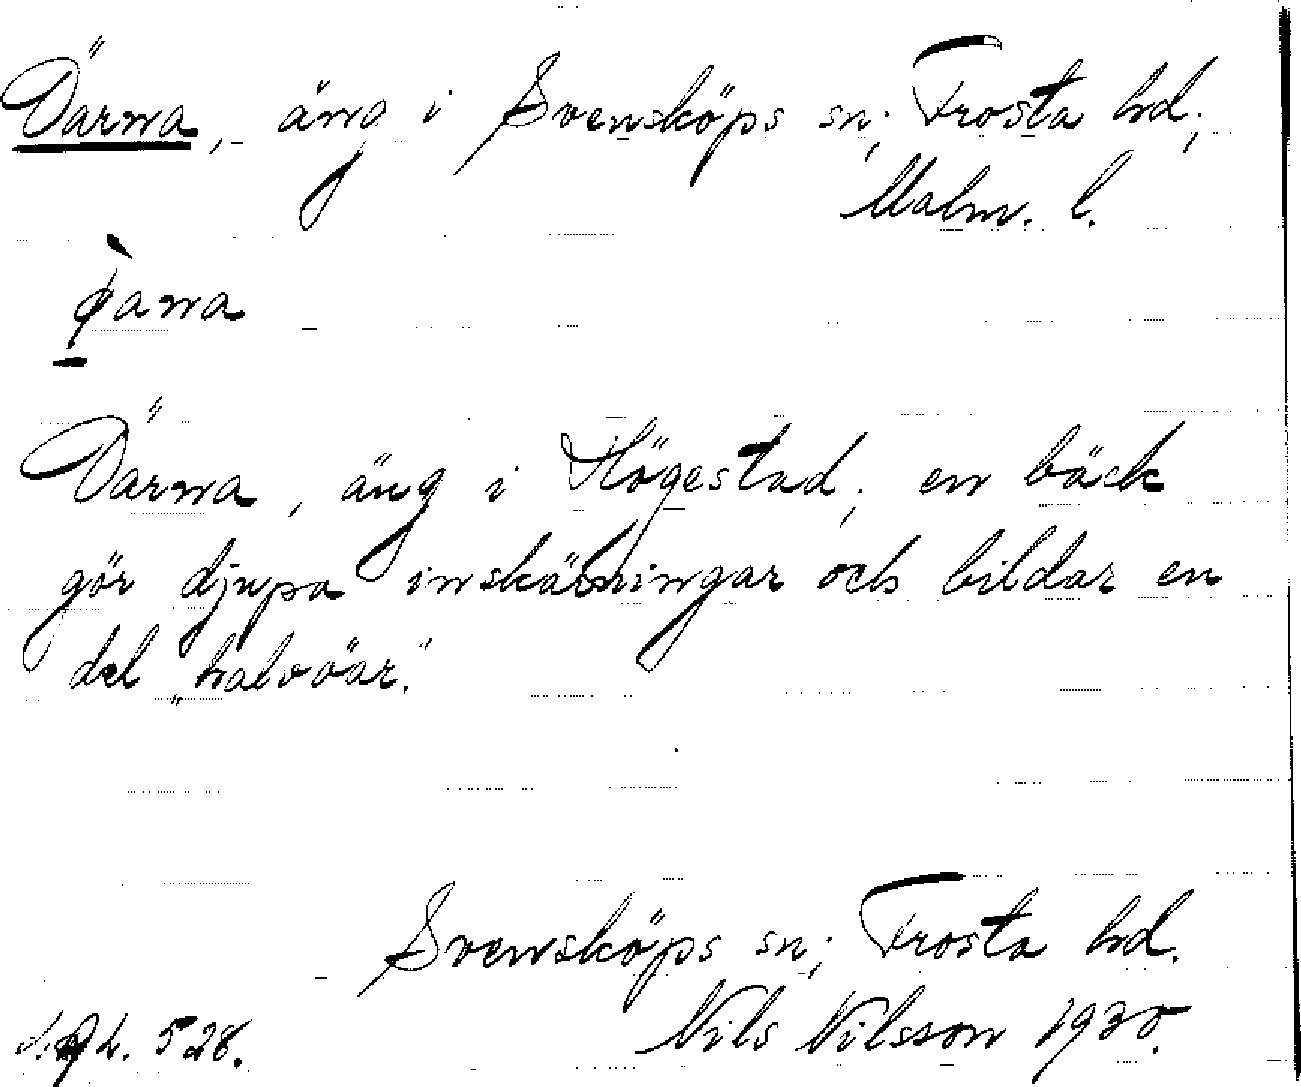 Öarna, äng i Svensköps sn; Frosta hd;
Malm. l.
Öarna, äng i Högestad; en bäck
gör djupa inskärningar och bildar en
del „halvöar."
Svensköps sn; Frosta hd.
528. Nils Nilsson 1930.